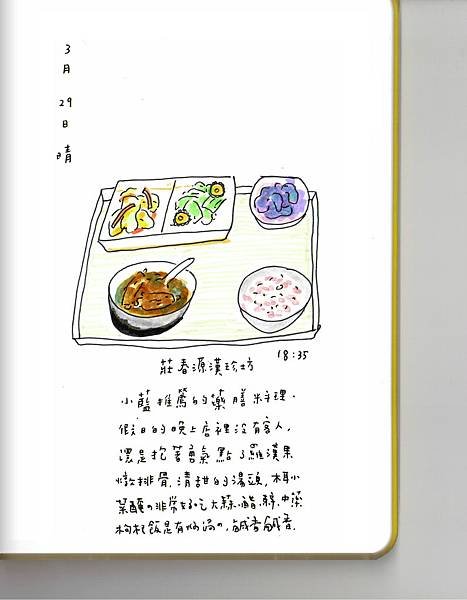 3月29日 晴
18:35
莊春源漢珍坊
小藍推薦的藥膳料理。
假日的晚上店裡沒有客人,
還是抱著勇氣點了羅漢果
燉排骨,清甜的湯頭,
菜醃の非常好吃
枸杞飯是有 の,鹹香鹹香.